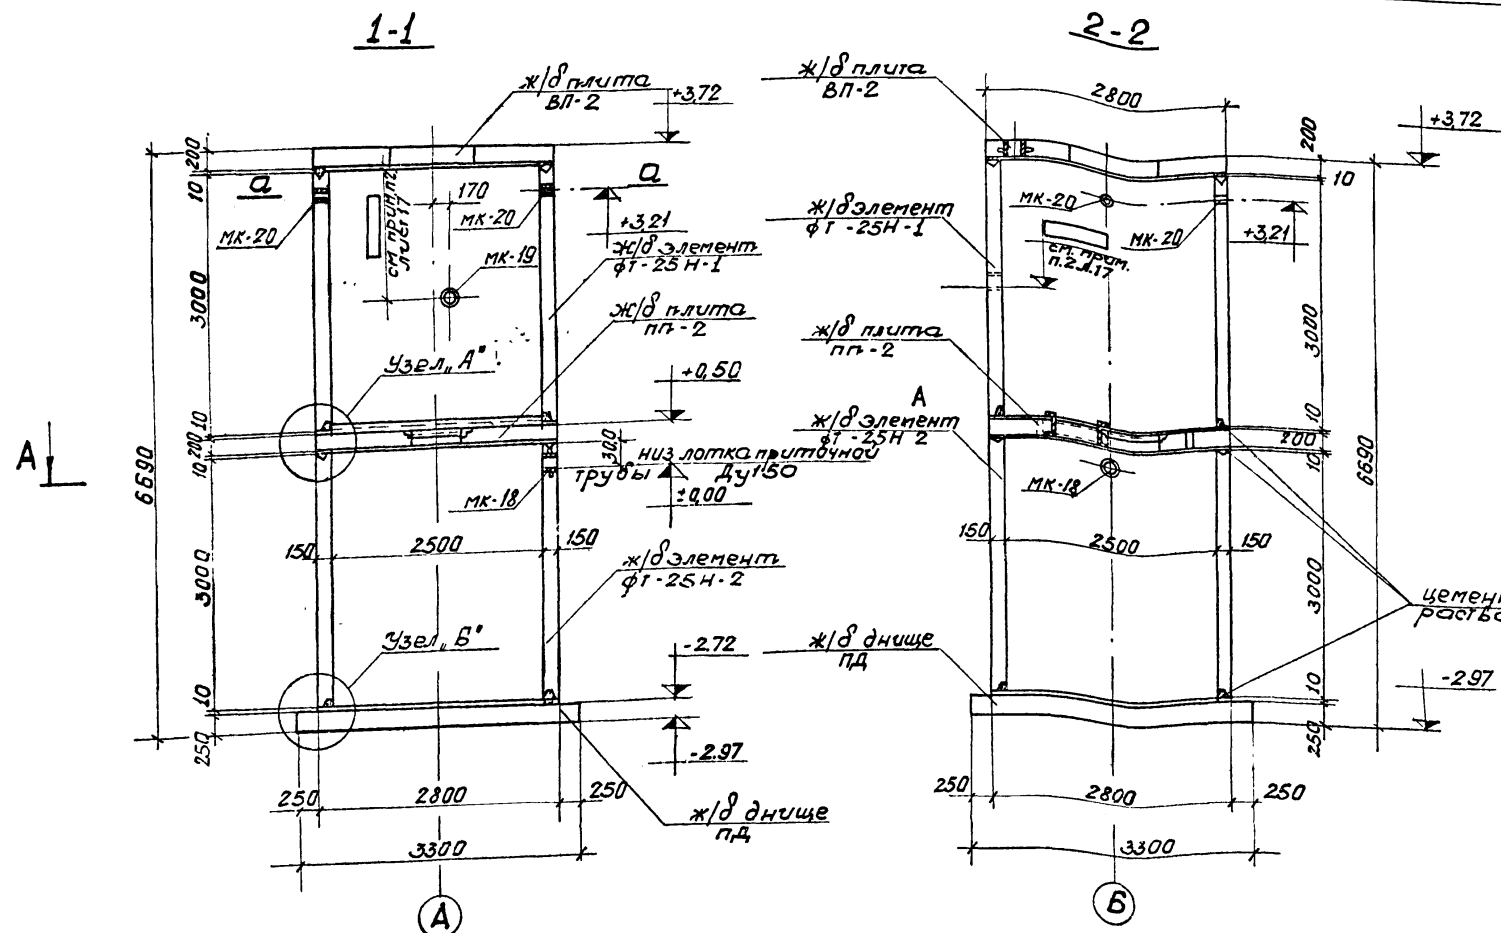 1-1
2-2
ж/б плита
ВП-2
+3,72
200
10
а
а
170
см. прим. п.2
лист 17
МК-20
МК-20
+3,21
МК-19
ж/б элемент
ФТ-25Н-1
3000
ж/б плита
ПП-2
Узел „А"
+0,50
10
200
10
300
низ лотка приточной
трубы Ду150
МК-18
±0,00
А
6690
150
2500
150
ж/б элемент
ФТ-25Н-2
3000
Узел „Б"
-2.72
10
250
-2.97
250
2800
250
ж/б днище
ПД
3300
А
ж/б плита
ВП-2
2800
+3,72
200
10
МК-20
МК-20
ж/б элемент
ФТ-25Н-1
+3,21
см. прим.
п.2 л.17
3000
ж/б плита
ПП-2
А
ж/б элемент
ФТ-25Н 2
10
200
10
6690
МК-18
150
2500
150
3000
цемен
раство
ж/б днище
ПД
10
-2.97
250
250
2800
250
3300
Б